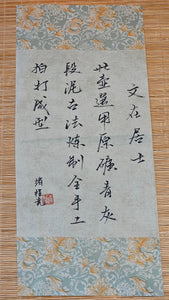 文在居士
此壶选用原矿青灰
段泥古法炼制全手工
拍打成型